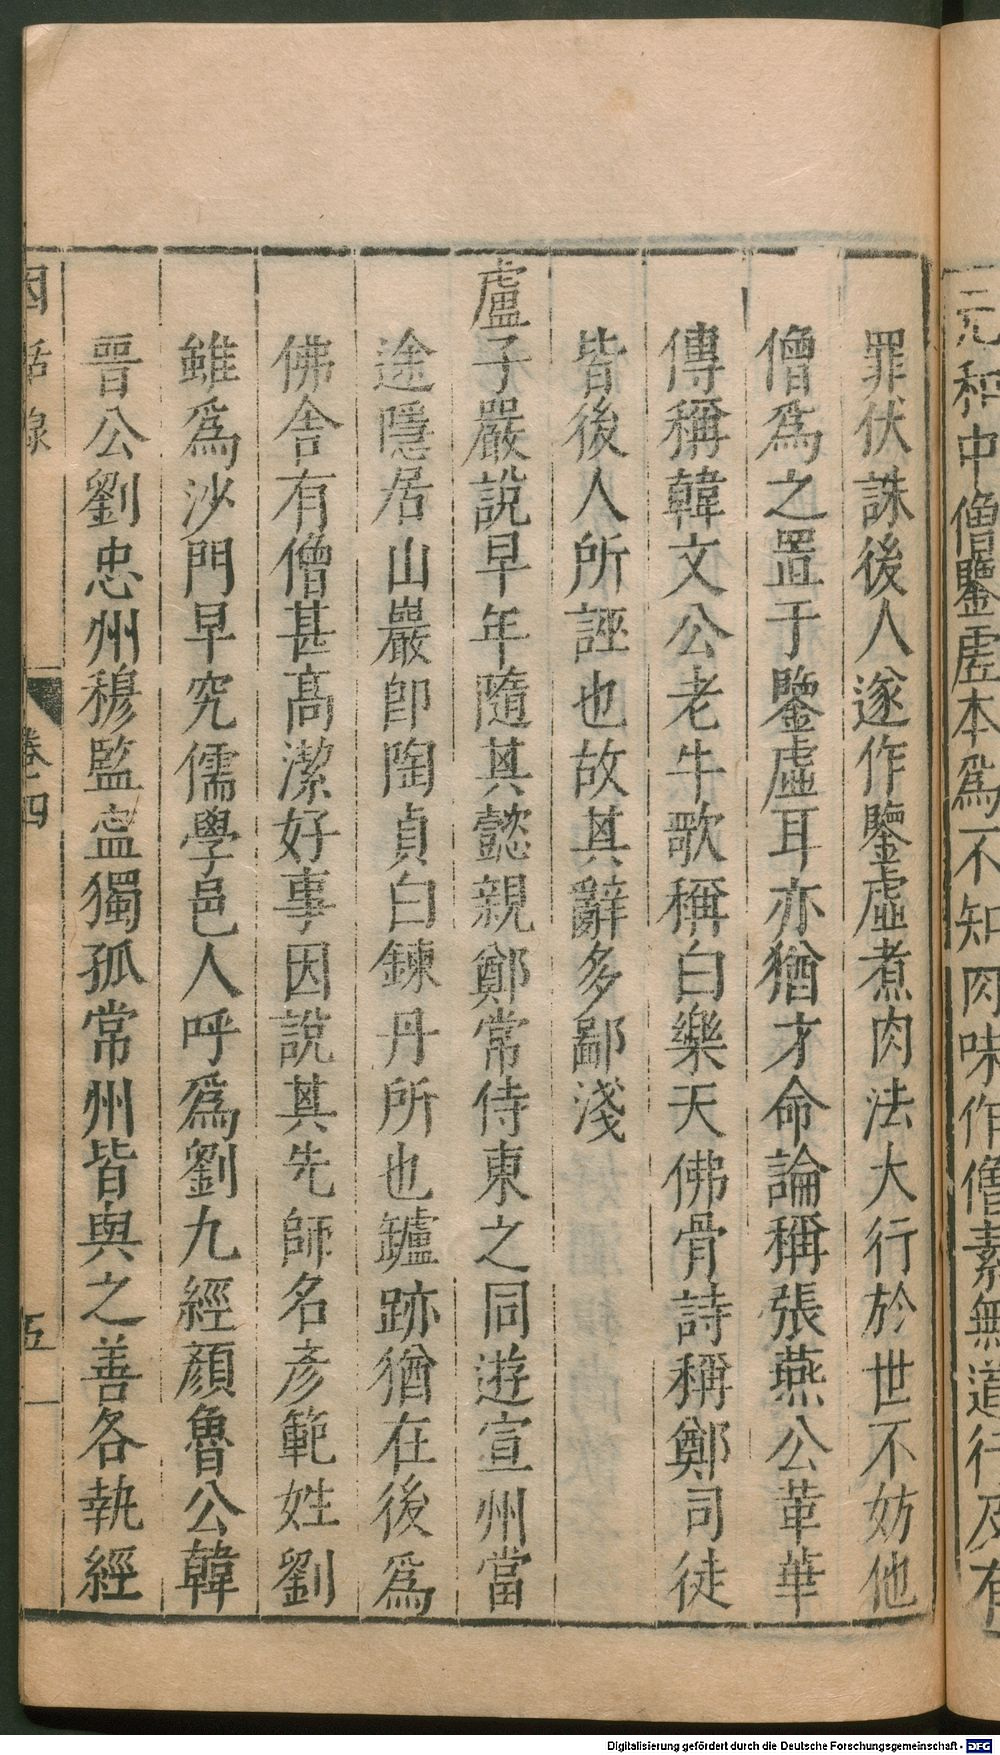 元和中僧鑒虛本為不知肉味作僧素無道行及有
罪伏誅後人遂作鑒虛煮肉法大行於世不妨他
僧為之置于鑒虛耳亦猶才命論稱張燕公革華
傳稱韓文公老牛歌稱白樂天佛骨詩稱鄭司徒
皆後人所誣也故其辭多鄙淺
盧子嚴說早年隨其懿親鄭常侍東之同遊宣州當
途隱居山巖即陶貞白鍊丹所也鑪跡猶在後為
佛舍有僧甚高潔好事因說其先師名彥範姓劉
雖為沙門早究儒學邑人呼為劉九經顏魯公韓
晉公劉忠州穆監盐獨孤常州皆與之善各執經
因話錄 卷四 五
Digitalisierung gefördert durch die Deutsche Forschungsgemeinschaft - DFG